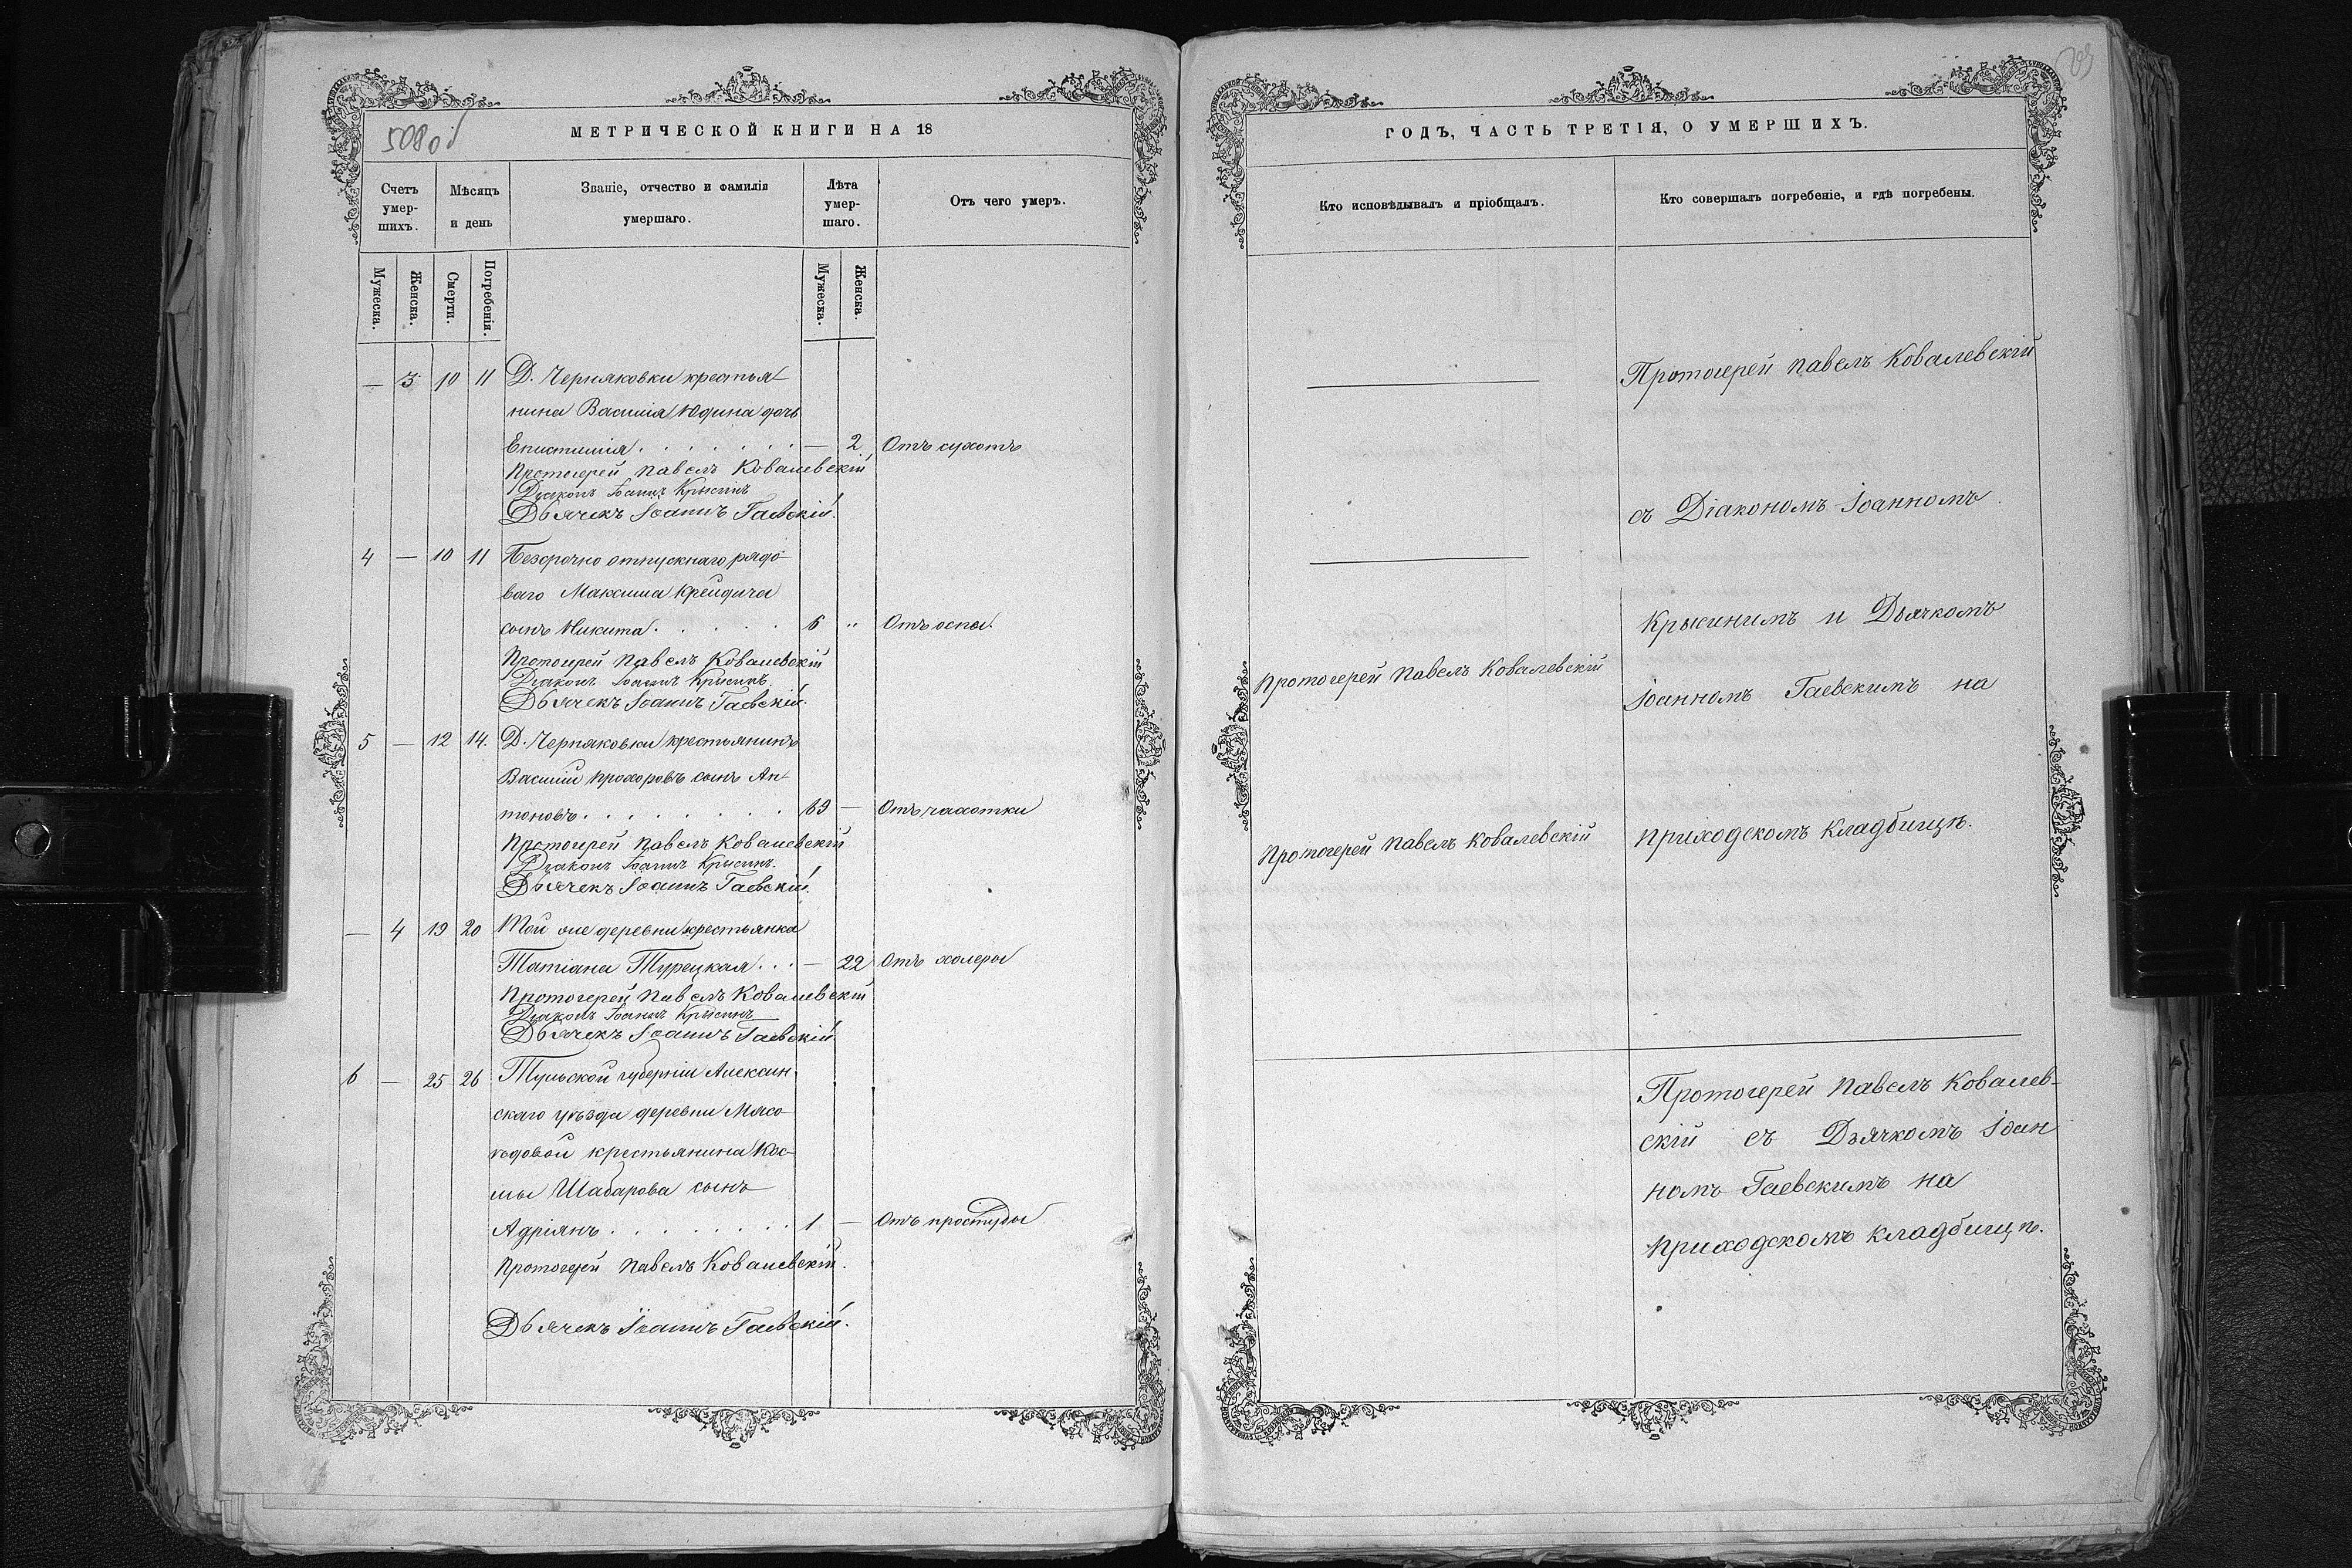 508 об
МЕТРИЧЕСКОЙ КНИГИ НА 18
Счетъ умер-шихъ.
Мѣсяцъ и день
Званіе, отчество и фамилія умершаго.
Лѣта умер-шаго.
Отъ чего умеръ.
Мужеска.
Женска.
Смерти.
Погребенія.
Мужеска.
Женска.
— 3 10 11 Д. Черняковки крестья-
нина Василія Юдина дочь
Епистимія . . . . . . . — 2 Отъ сухотъ
Протоіерей Павелъ Ковалевскій
Діаконъ Іоаннъ Крысинъ
Дьячекъ Іоаннъ Гаевскій.
4 — 10 11 Безсрочно отпускнаго рядо-
ваго Максима Крейдича
сынъ Никита . . . . . 6 „ Отъ оспы.
Протоіерей Павелъ Ковалевскій
Діаконъ Іоаннъ Крысинъ.
Дьячекъ Іоаннъ Гаевскій.
5 — 12 14. Д. Черняковки крестьянинъ
Василій Прохоровъ сынъ Ан-
тоновъ . . . . . . . . 69 — Отъ чахотки
Протоіерей Павелъ Ковалевскій
Діаконъ Іоаннъ Крысинъ.
Дьячекъ Іоаннъ Гаевскій.
— 4 19 20 Той же деревни крестьянка
Татіана Турецкая . . . — 22 Отъ холеры
Протоіерей Павелъ Ковалевскій
Діаконъ Іоаннъ Крысинъ
Дьячекъ Іоаннъ Гаевскій
6 — 25 26 Тульской губерніи Алексин-
скаго уѣзда деревни Мясо-
ѣдовой крестьянина Кос-
мы Шабарова сынъ
Адріянъ . . . . . . . . 1 — Отъ простуды
Протоіерей Павелъ Ковалевскій.
Дьячекъ Іоаннъ Гаевскій.
ГОДЪ, ЧАСТЬ ТРЕТІЯ, О УМЕРШИХЪ.
Кто исповѣдывалъ и пріобщалъ.
Кто совершалъ погребеніе, и гдѣ погребены.
Протоіерей Павелъ Ковалевскій
съ Діакономъ Іоанномъ
Крысинимъ и Дьячкомъ
Протоіерей Павелъ Ковалевскій
Іоанномъ Гаевскимъ на
Протоіерей Павелъ Ковалевскій
приходскомъ кладбищѣ.
Протоіерей Павелъ Ковалев-
скій съ Дьячкомъ Іоан
номъ Гаевскимъ на
приходскомъ кладбищѣ.